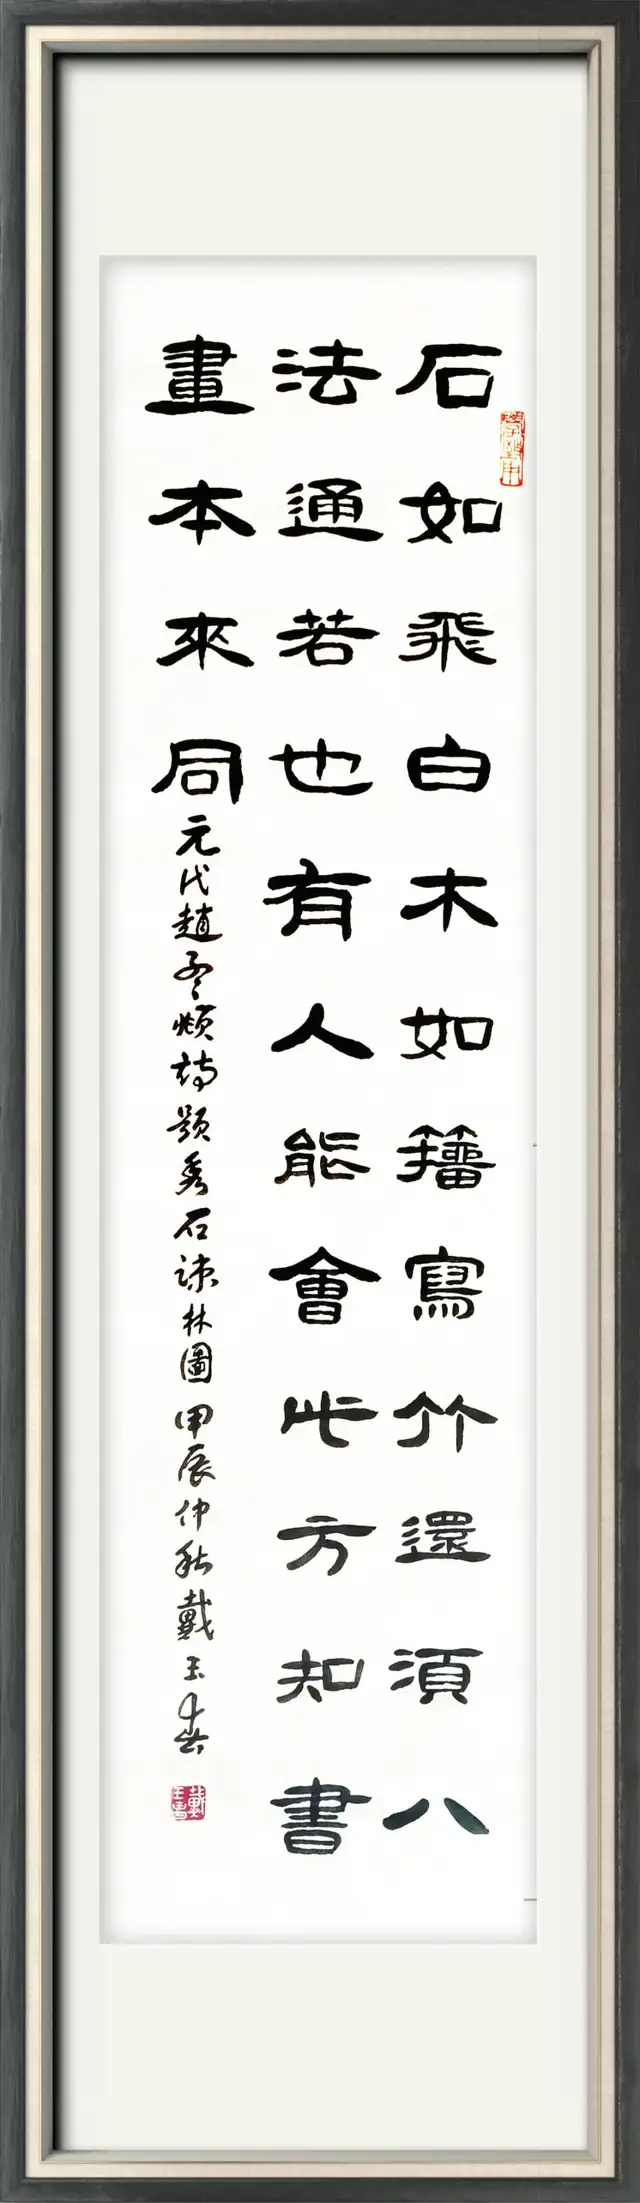 石如飛白木如籀寫竹還須八
法通若也有人能會此方知書
畫本來同
元代趙孟頫詩題秀石疎林圖甲辰仲秋戴玉